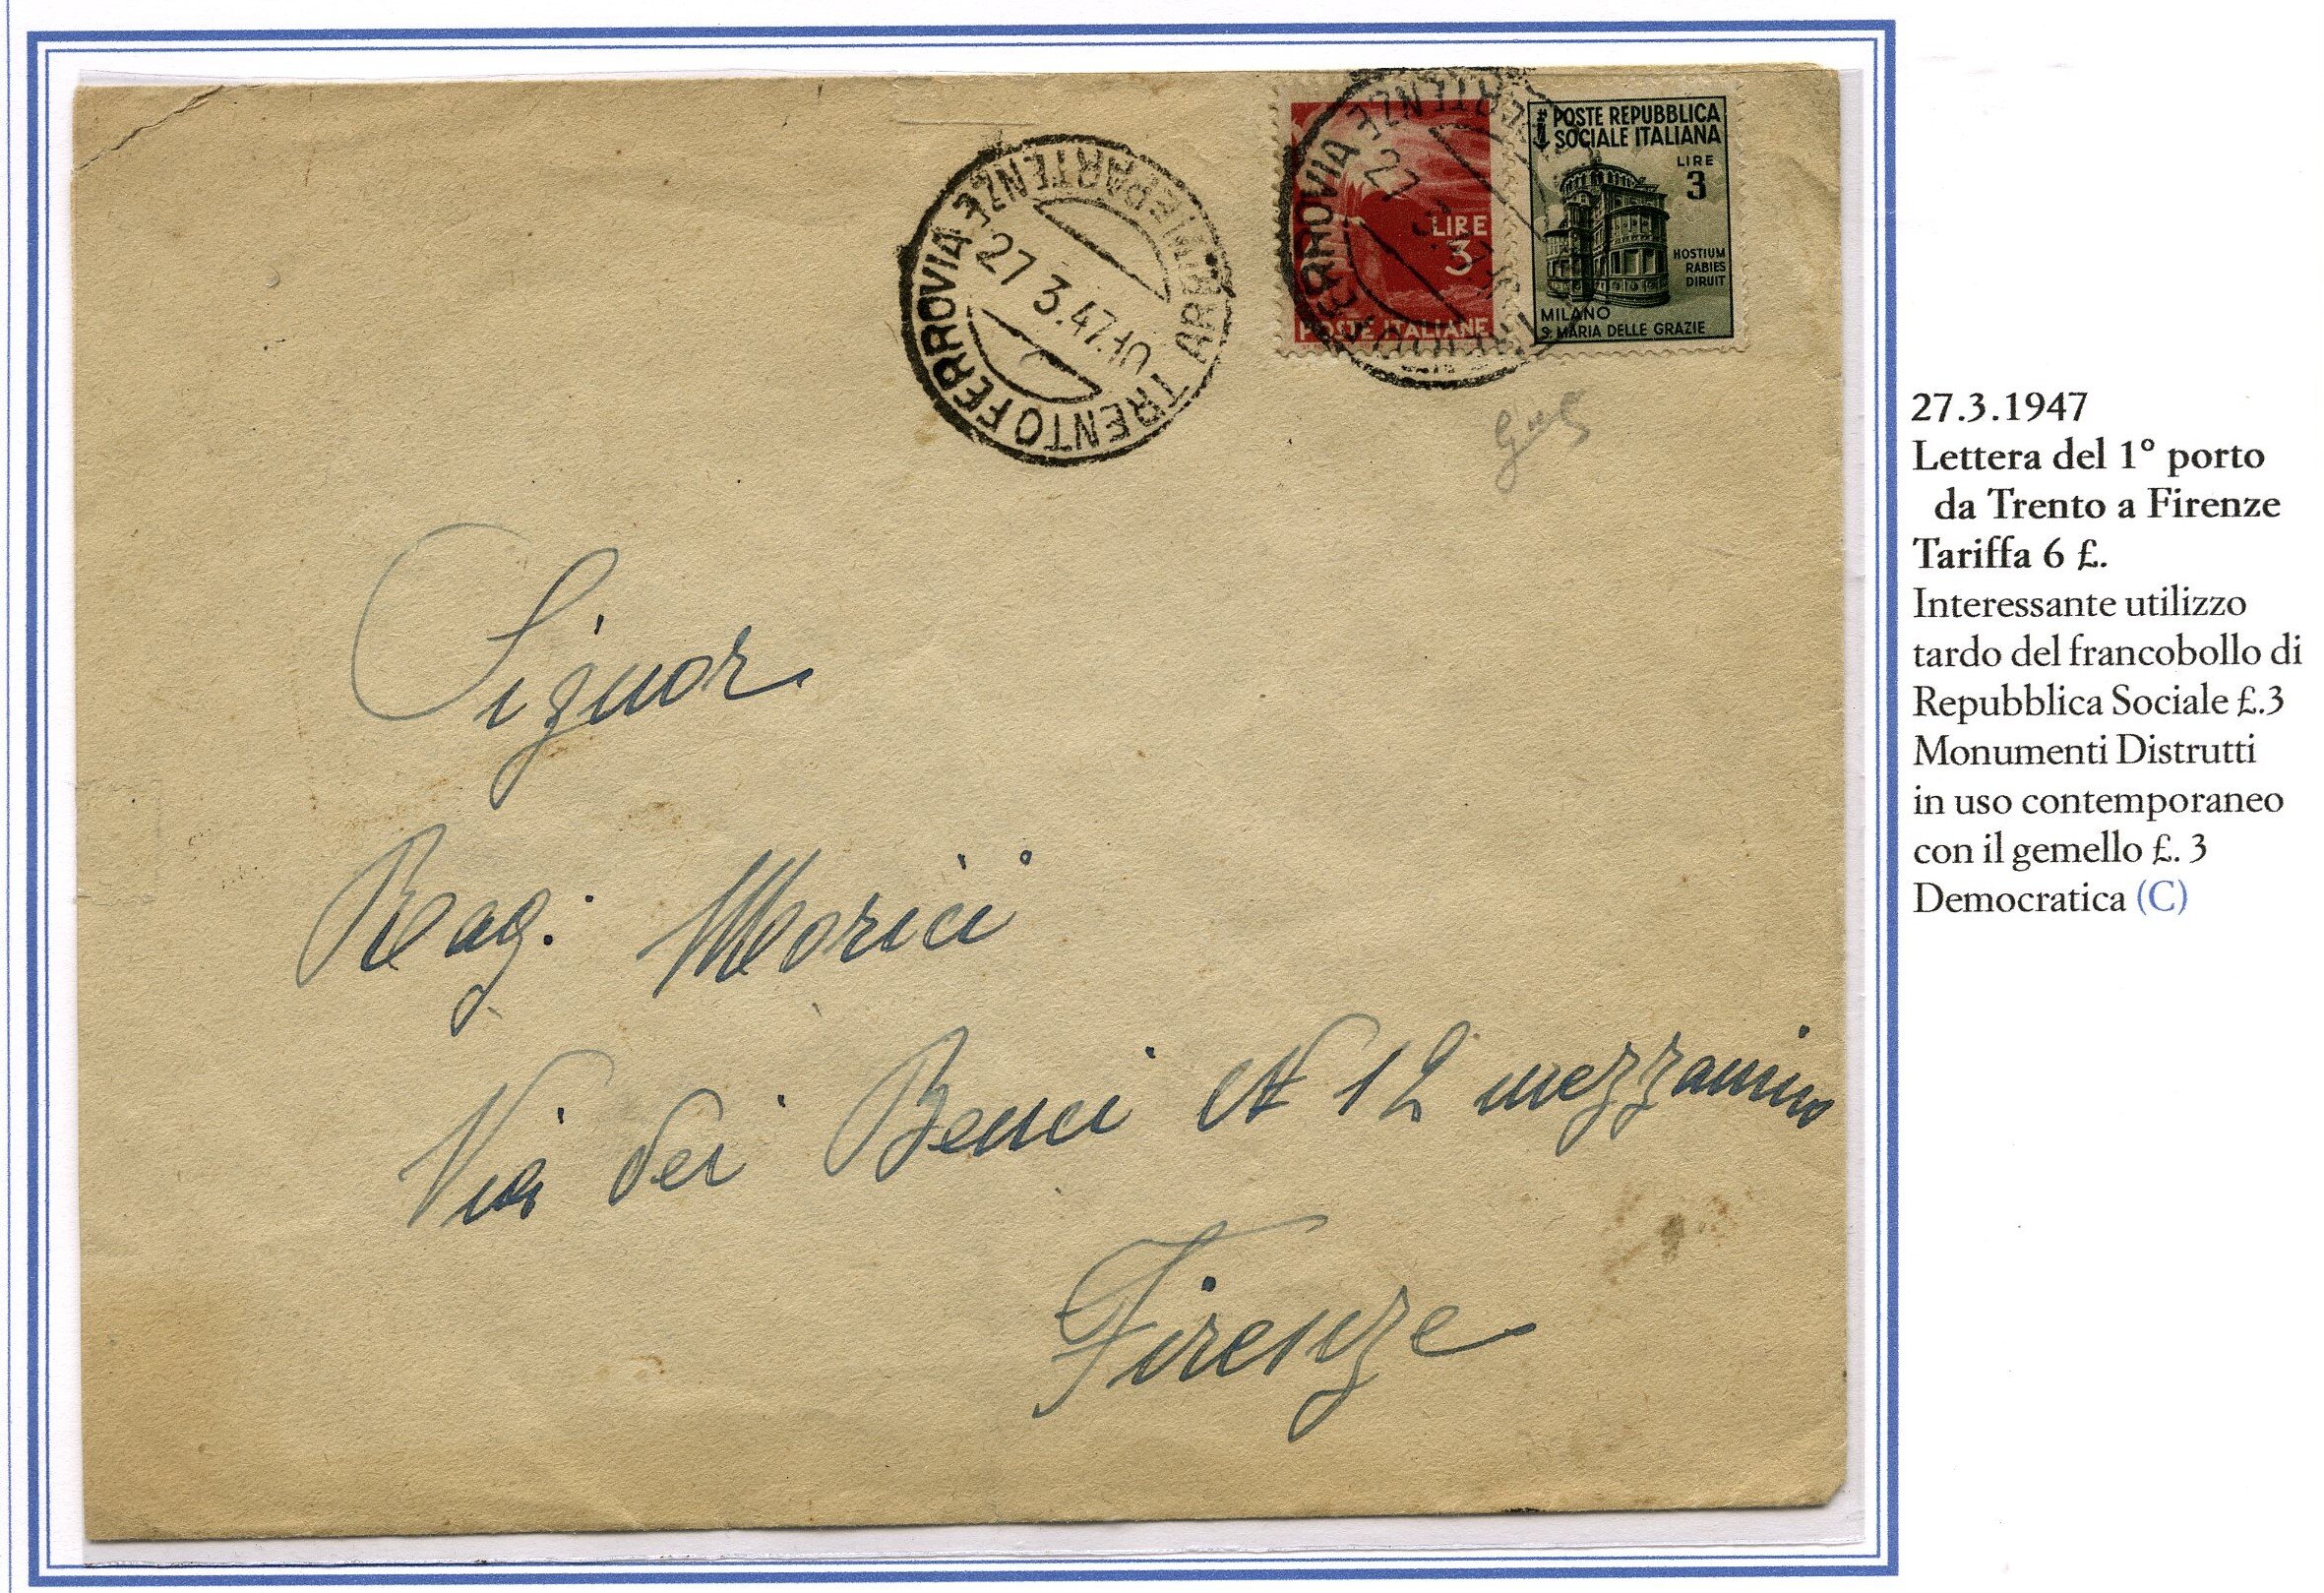 TRENTO FERROVIA
ARRIVI E PARTENZE
27 3.47.-10
FERROVIA
PARTENZE
27
LIRE
3
POSTE ITALIANE
POSTE REPUBBLICA
SOCIALE ITALIANA
LIRE
3
HOSTIUM
RABIES
DIRUIT
MILANO
S. MARIA DELLE GRAZIE
Signor
Rag. Morici
Via dei Benci N 12 mezzanino
Firenze
27.3.1947
Lettera del 1° porto
da Trento a Firenze
Tariffa 6 £.
Interessante utilizzo
tardo del francobollo di
Repubblica Sociale £.3
Monumenti Distrutti
in uso contemporaneo
con il gemello £. 3
Democratica (C)